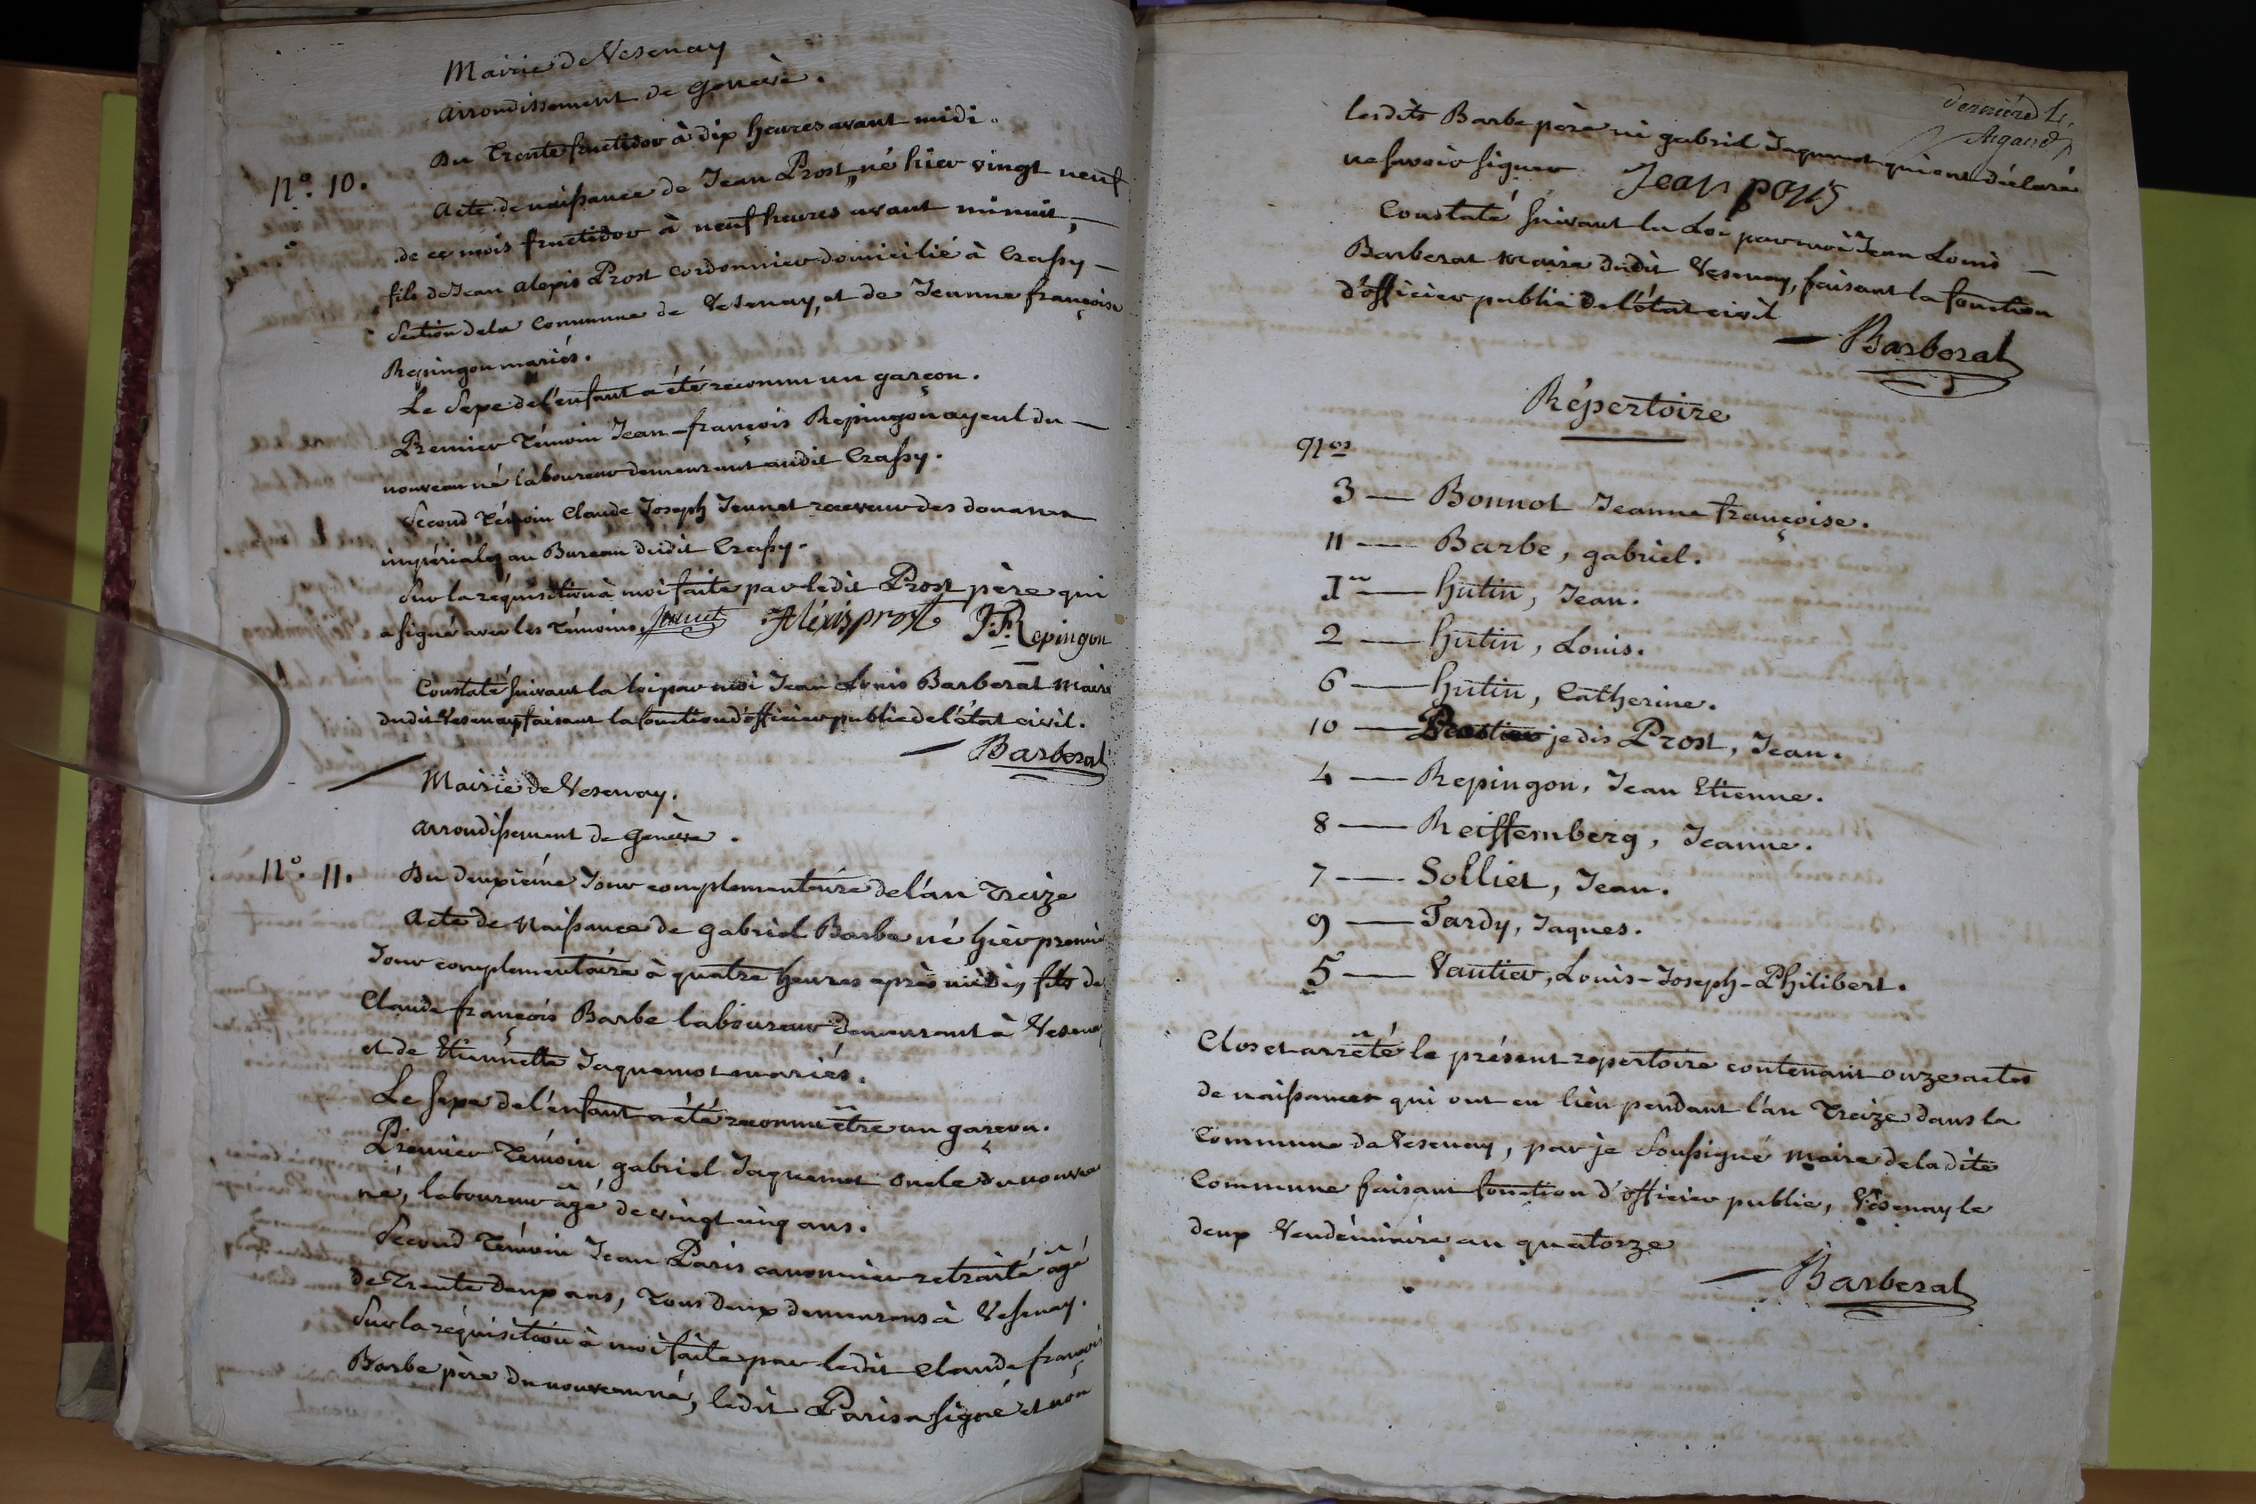 Mairie de Vesenay
arrondissement de Genève.
Du trente fructidor à dix heures avant midi.
N.° 10.
Acte de naissance de Jean Prost, né hier vingt neuf
de ce mois fructidor à neuf heures avant minuit,
fils de Jean alexis Prost cordonnier domicilié à Crassy
Section de la Commune de Vesenay, et de Jeanne françoise
Repingon mariés.
Le Sexe de l'enfant a été reconnu un garçon.
Premier Témoin Jean-françois Repingon ayeul du
nouveau né laboureur demeurant audit Crassy.
Second Témoin Claude Joseph Jeunet receveur des douanes
impériales au Bureau dudit Crassy.
Sur la réquisition à moi faite par ledit Prost père qui
a signé avec les Témoins. Jeunet Alexis prost J.F. Repingon
Constaté suivant la loi par moi Jean Louis Barberat Maire
dudit Vesenay faisant la fonction d'officier public de l'état civil.
Barberat
Mairie de Vesenay.
arrondissement de Genève.
N.° 11. Du deuxiéme Jour complementaire de l'an Treize
Acte de Naissance de gabriel Barbe né hier premier
Jour complementaire à quatre heures après midi, fils de
Claude françois Barbe laboureur demeurant à Vesenay
et de Etiennette Jaquemot mariés.
Le sexe de l'enfant a été reconnu être un garçon.
Premier Témoin gabriel Jaquemot oncle du nouveau
né, laboureur âgé de vingt cinq ans.
Second Témoin Jean Paris canonnier retraité âgé
de Trente deux ans, Tous deux demeurans à Vesenay.
Sur la réquisition à moi faite par ledit Claude françois
Barbe père du nouveau né, ledit Paris a signé et non
dernière L.
Argand
lesdits Barbe père ni gabriel Jaquemot qui ont déclaré
ne savoir signer Jean paris
Constaté suivant la Loi par moi Jean Louis
Barberat Maire dudit Vesenay, faisant la fonction
d'officier public de l'état civil
Barberat
Répertoire
Nos
3 — Bonnot Jeanne françoise.
11 — Barbe, gabriel.
1er — hutin, Jean.
2 — hutin, Louis.
6 — hutin, Catherine.
10 — je dis Prost, Jean.
4 — Repingon, Jean Etienne.
8 — Reiffemberg, Jeanne.
7 — Solliet, Jean.
9 — Tardy, Jaques.
5 — Vautier, Louis-Joseph-Philibert.
Clos et arrêté le présent repertoire contenant onze actes
de naissances qui ont eu lieu pendant l'an Treize dans la
Commune de Vesenay, par je Soussigné Maire de la dite
Commune faisant fonction d'officier public, Vesenay le
deux Vendémiaire an quatorze
Barberat